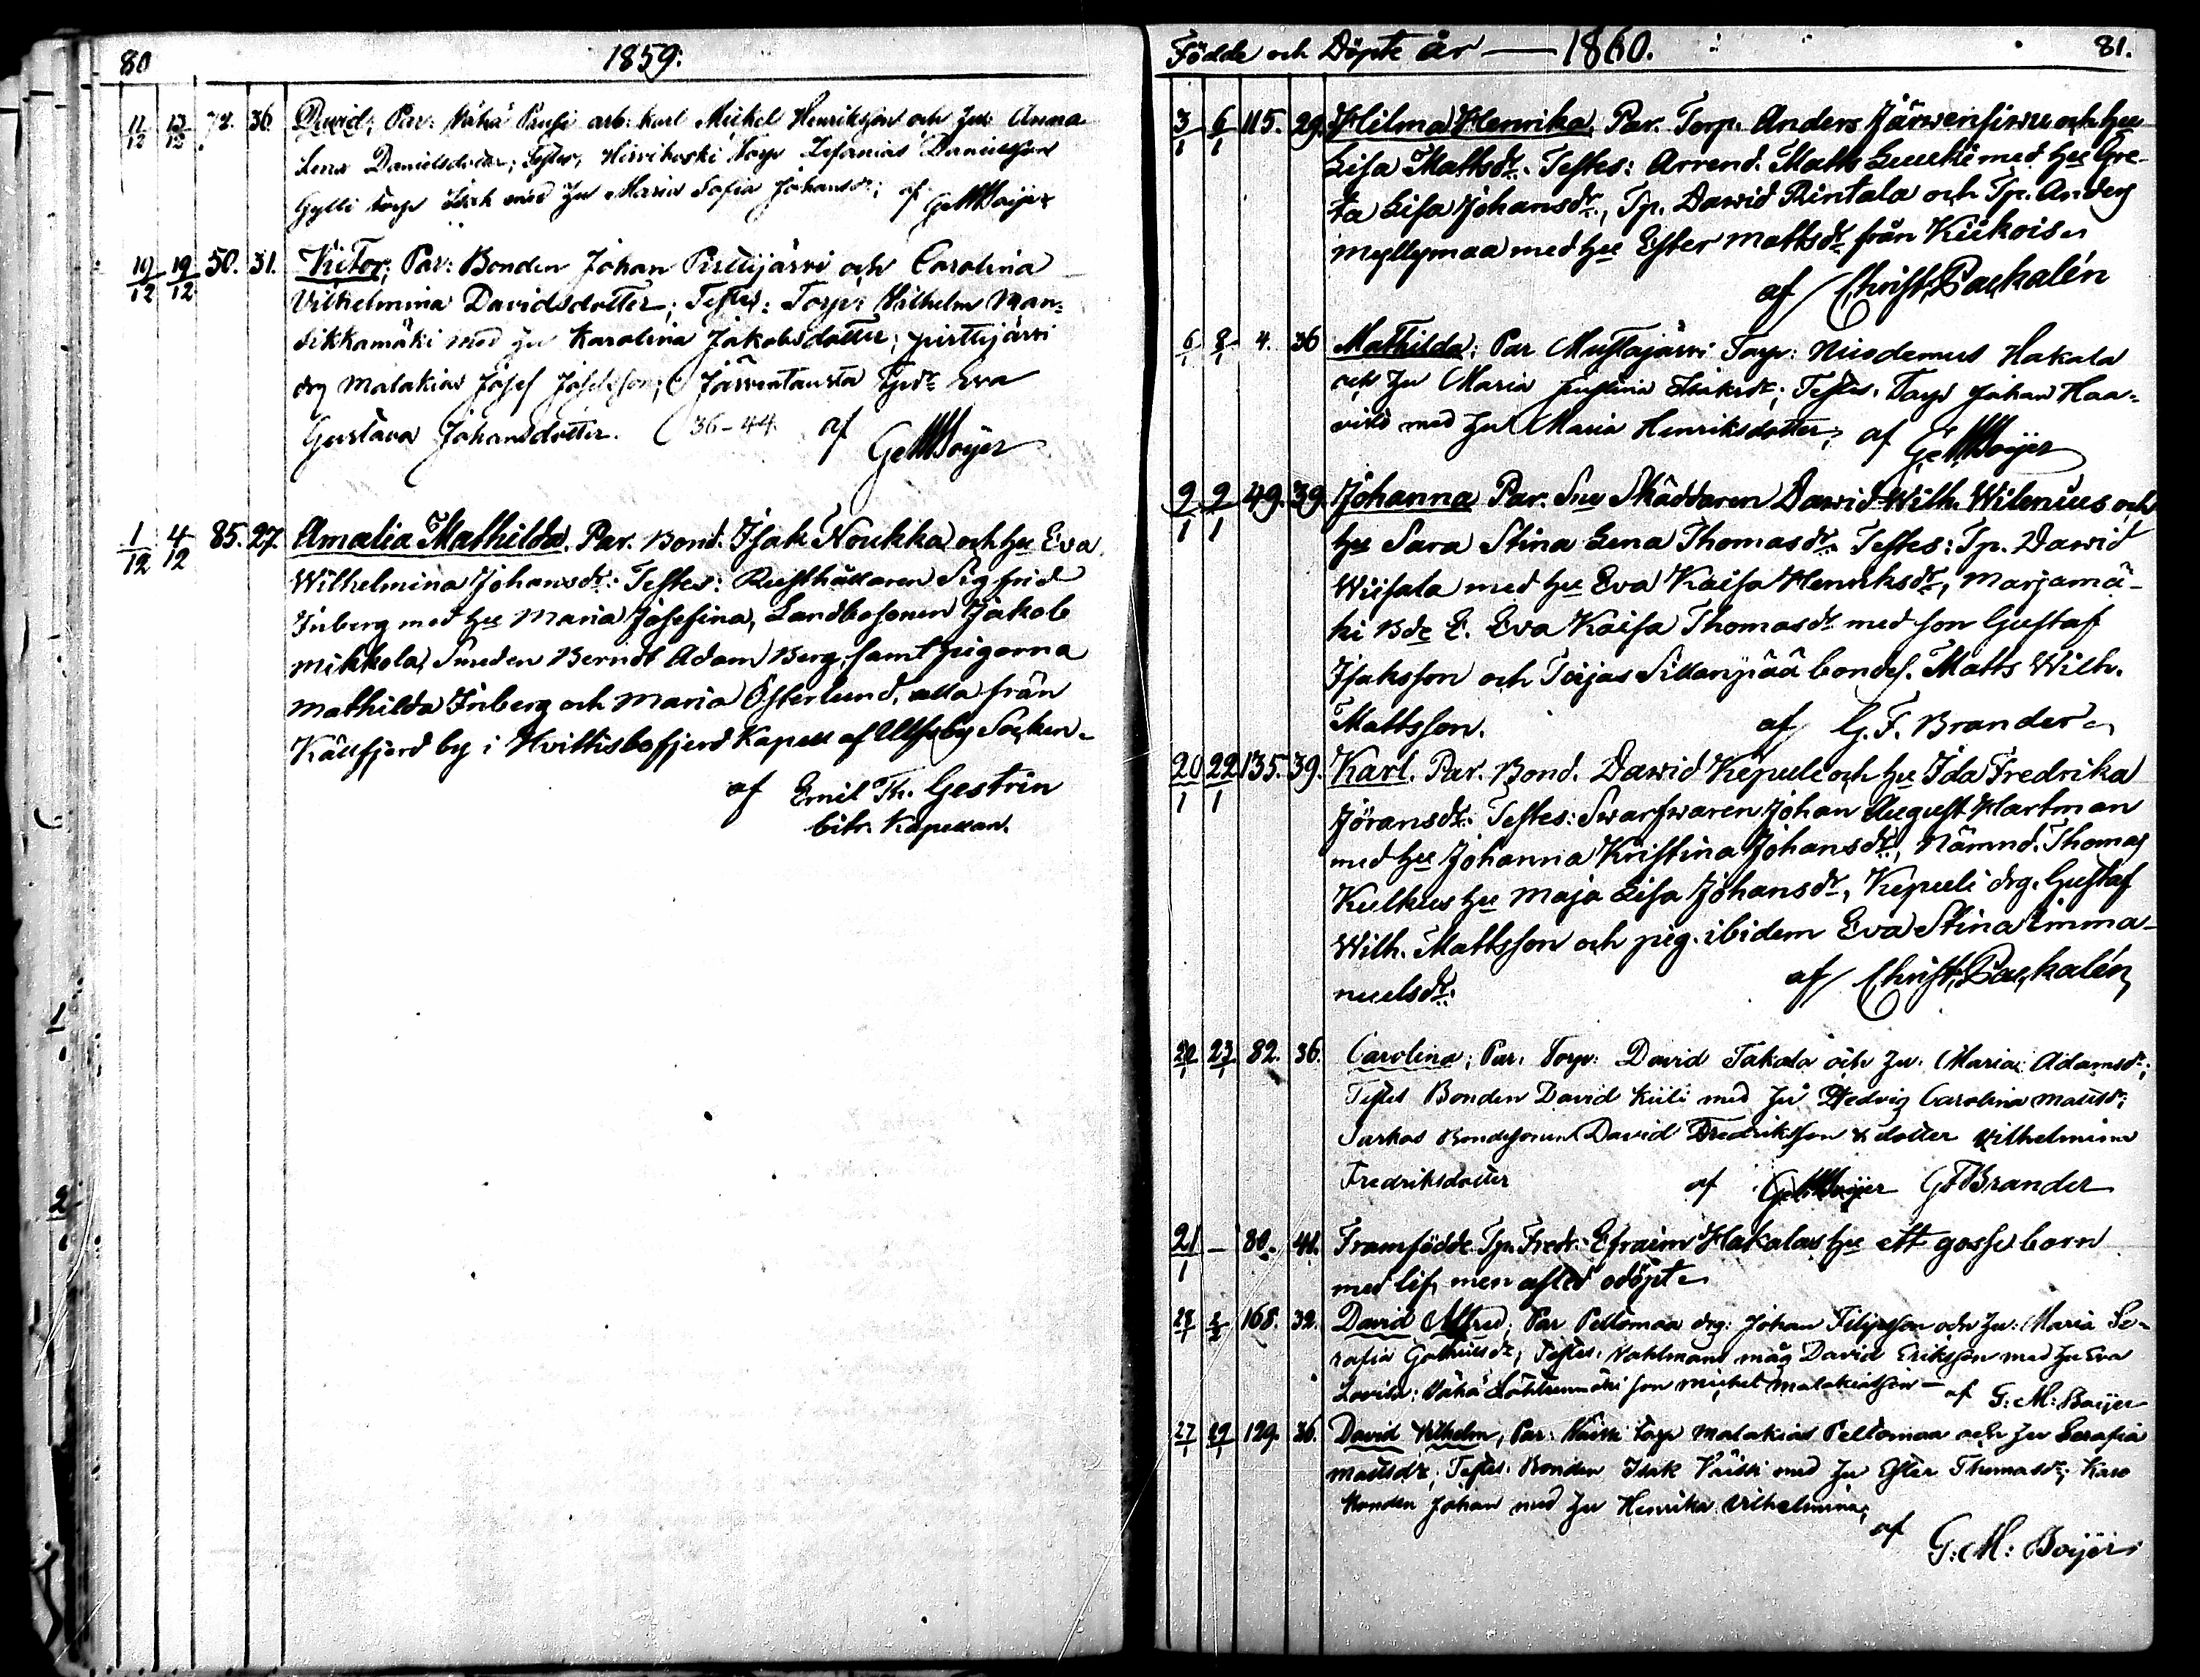 80
1859.
11/12 13/12 36. David; Par: Vähä arb. karl Michel Henriksson och hu Anna
Lena Danielsdotter; Testes, Hirvikoski Torp. Zefanias Danielsson
Gylli torp Isak med hu Maria Sofia Johansdr; af GMBoijer
10/12 19/12 50. 31. Victor; Par: Bonden Johan Pirttijärvi och Carolina
Vilhelmina Davidsdotter; Testes: Torp: Vilhelm Man-
sikkamäki med hu Karolina Jakobsdotter; pirttijärvi
drg Malakias Josef Josefsson; Järventausta Eva
Gustava Johansdotter. (36-44. af GMBoijer
1/12 4/12 85. 27. Amalia Mathilda. Par. Bond. Isak Noukka och hu Eva
Wilhelmina Johansdr. Testes: Rusthållaren Sigfrid
Inberg med hu Maria Josefina, Landbosonen Jakob
Mikkola, Smeden Berndt Adam Berg, samt pigorna
Mathilda Inberg och Maria Österlund, alla från
Källfjerd by i Hvittisbofjerd Kapell af Ulfsby Socken.
af Emil Th. Gestrin
bitr. Kapellan.
Födde och Döpte år — 1860. 81.
3/1 6/1 115. 29. Hilma Henrika, Par. Torp. Anders Järwensiwu och hu
Lisa Mattsdr. Testes: Arrend. Matts med hu Gre-
ta Lisa Johansdr., Tp. Dawid Rintala och Tp. Anders
Myllymaa med hu Ester Mattsdr från Kiikois.
af Christ. Packalén
6/1 8/1 4. 36 Mathilda; Par Mustajärvi Torp: Nicodemus Hakala
och hu Maria Justina Isaksdr; Testes. Torp Johan Haa-
visto med hu Maria Henriksdotter; af GMBoijer
9/1 9/1 49. 39. Johanna Par. Skäddaren Dawid Wilh. Wilenius och
hu Sara Stina Lena Thomasdr. Testes: Tp. Dawid
Wiisala med hu Eva Kaisa Henriksdr, Marjamä-
ki Bde E. Eva Kaisa Thomasdr med son Gustaf
Isaksson och Sillanpää bondes. Matts Wilh.
Mattsson. af G. F. Brander
20/1 22/1 135. 39. Karl. Par. Bond. Dawid Kepuli och hu Ida Fredrika
Jöransdr. Testes: Swarfwaren Johan August Hartman
med hu Johanna Kristina Johansdr, Nämnd. Thomas
Kulkus hu Maja Lisa Johansdr, Kepuli drg. Gustaf
Wilh. Mattsson och pig. ibidem Eva Stina Emma-
nuelsdr. af Christ. Packalén
20/1 23/1 82. 36. Carolina; Par. Torp: David Takala och hu. Maria Adamsdr;
Testes Bonden David Kuli med hu Hedvig Carolina Mattsdr;
Sarkos Bondesonen David Fredriksson & dotter Vilhelmina
Fredriksdotter af GMBoijer GFBrander
21/1 — 80. 41. Framfödde Tp. Fredr. Efraim Hakalas hu ett gossebarn
med lif, men afled odöpt.
28/1 2/2 168. 32. David Alfred; Par Peltomaa drg: Johan Filipsson och hu: Maria Se-
rafia; Testes. Vahlmans måg David Eriksson med hu Eva
Lovisa: Vähä son Michel Malakiasson — af G: M: Boijer
27/1 29/1 129. 36. David Vilhelm, Par: torp Malakias Peltomaa och hu Serafia
Mattsdr; Testes: Bonden Isak med hu Ester Thomasdr;
Bonden Johan med hu Henrika Vilhelmina;
af G: M: Boijer